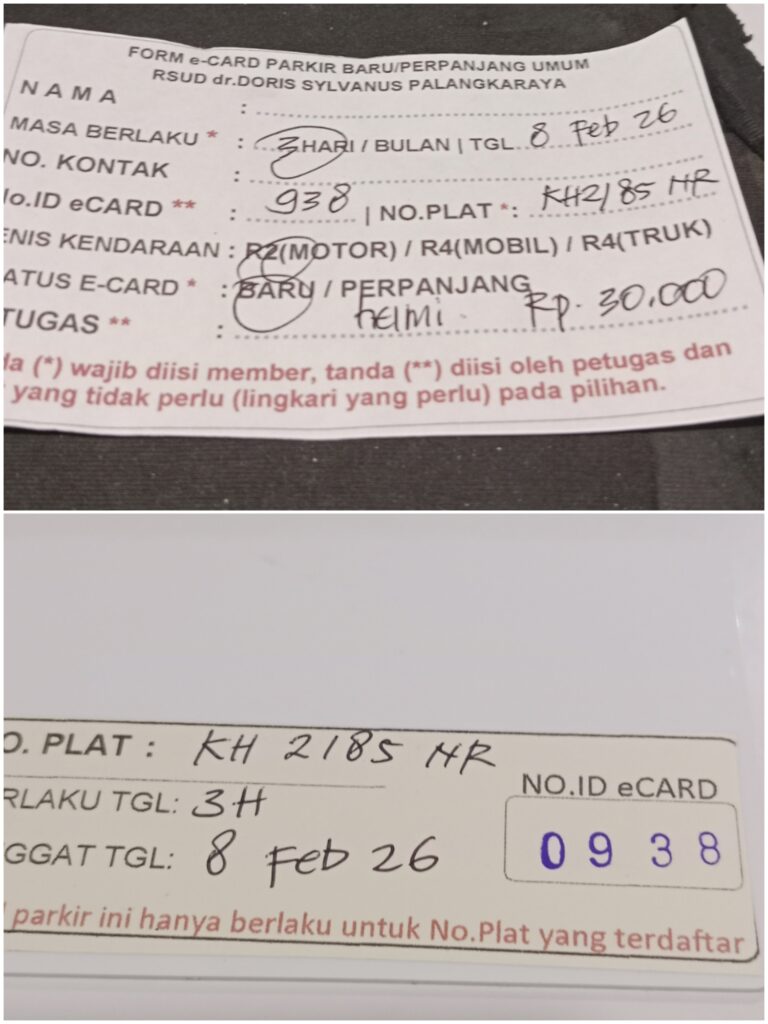 FORM e-CARD PARKIR BARU/PERPANJANG UMUM
RSUD dr.DORIS SYLVANUS PALANGKARAYA
NAMA :
MASA BERLAKU * : 3 HARI / BULAN | TGL. 8 Feb 26
NO. KONTAK :
No.ID eCARD ** : 938 | NO.PLAT *: KH2185 HR
ENIS KENDARAAN : R2(MOTOR) / R4(MOBIL) / R4(TRUK)
ATUS E-CARD * : BARU / PERPANJANG
TUGAS ** : helmi Rp. 30.000
da (*) wajib diisi member, tanda (**) diisi oleh petugas dan
yang tidak perlu (lingkari yang perlu) pada pilihan.
O. PLAT : KH 2185 HR
RLAKU TGL: 3H
GGAT TGL: 8 Feb 26
NO.ID eCARD
0938
parkir ini hanya berlaku untuk No.Plat yang terdaftar